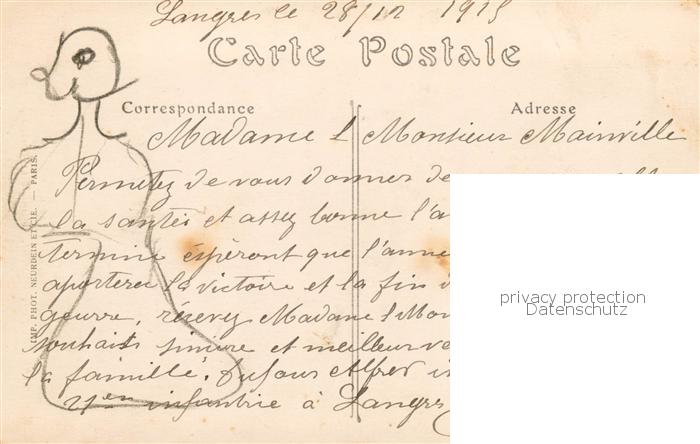 Langres le 28/12 1915
Carte Postale
Correspondance
Adresse
Madame & Monsieur Mainville
Permetez de vous donner de
la santés et assez bonne l'a
termine espèront que l'anne
aporterer la victoire et la fin
geurre, recevez Madame & Mon
souhait sincere et meilleur
la famille. Alfred
21em infantrie à Langres
IMP. PHOT. NEURDEIN ET CIE. — PARIS.
privacy protection
Datenschutz